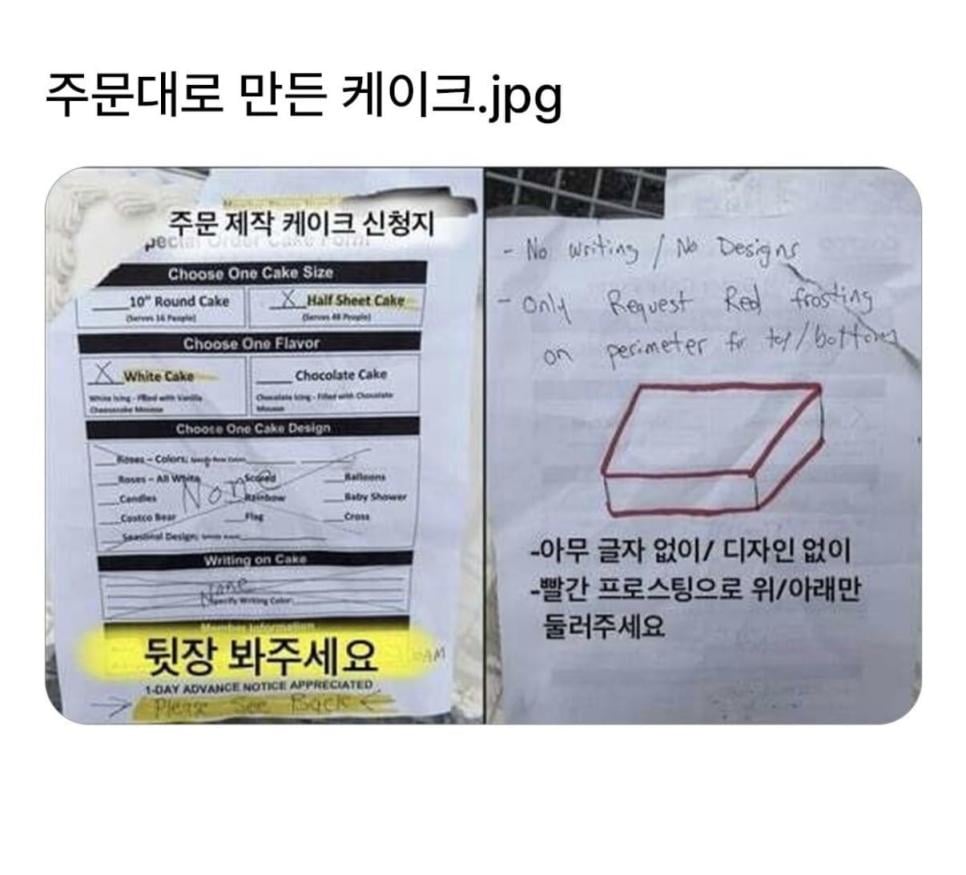 주문대로 만든 케이크.jpg
주문 제작 케이크 신청지
pecial Order Cake Form
Choose One Cake Size
10" Round Cake
(Serves 16 People)
X Half Sheet Cake
(Serves 48 People)
Choose One Flavor
X White Cake
White Icing - Filled with Vanilla
Cheesecake Mousse
Chocolate Cake
Chocolate Icing - Filled with Chocolate
Mousse
Choose One Cake Design
Roses - Colors:
Roses - All White
Scored
Balloons
None
Candles
Rainbow
Baby Shower
Costco Bear
Flag
Cross
Seasonal Design:
Writing on Cake
None
Specify Writing Color:
Member Information
뒷장 봐주세요
AM
1-DAY ADVANCE NOTICE APPRECIATED
→ Please See Back ←
- No writing / No Designs
- Only Request Red frosting
on perimeter fr top/bottom
-아무 글자 없이/ 디자인 없이
-빨간 프로스팅으로 위/아래만
둘러주세요